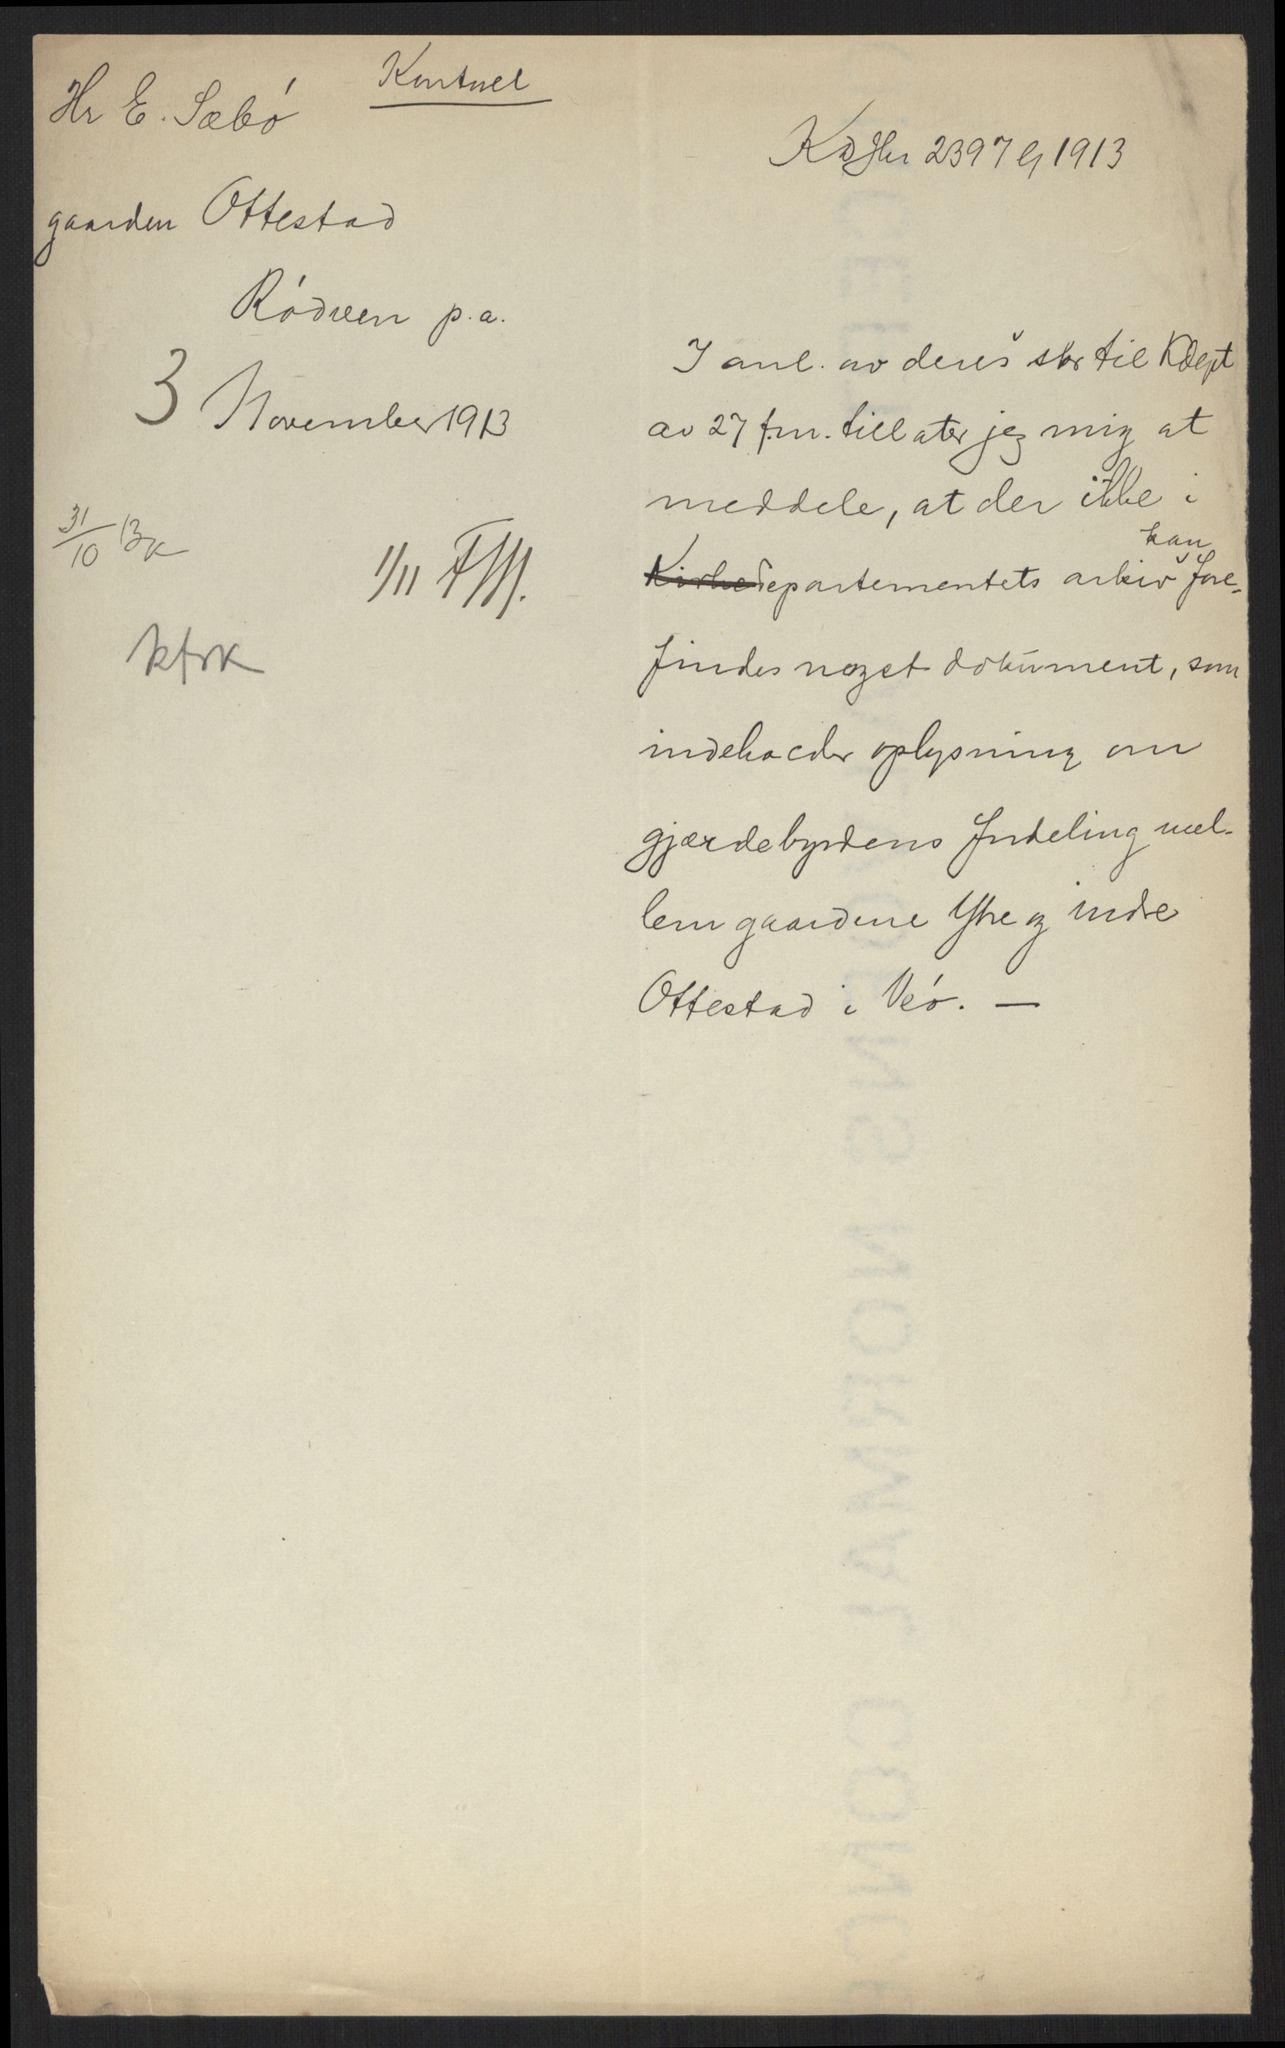 Hr E. Sæbó
gaarden Ottestad
Ródven p.a.
3 November 1913
31/10 13 K
1/11
kfrk
2397 1913
I anl. av deres skr til Kdept
av 27 f.m. tillater jeg mig at
meddele, at der ikke i
Kirkedepartementets arkiv kan fore-
findes noget dokument, som
indeholder oplysning om
gjærdebyrdens fordeling mel-
lem gaardene Ytre og indre
Ottestad i Veó. —